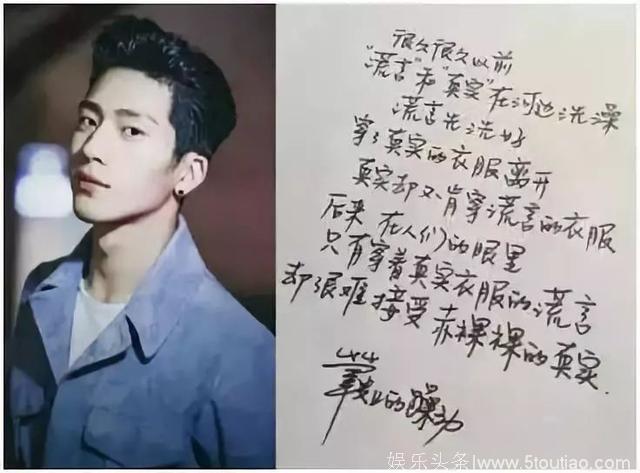 很久很久以前
"谎言"和"真实"在河边洗澡
谎言先洗好
穿了真实的衣服离开
真实却不肯穿谎言的衣服
后来 在人们的眼里
只有穿着真实衣服的谎言
却很难接受赤裸裸的真实.
的躁动
娱乐头条|www.5toutiao.com